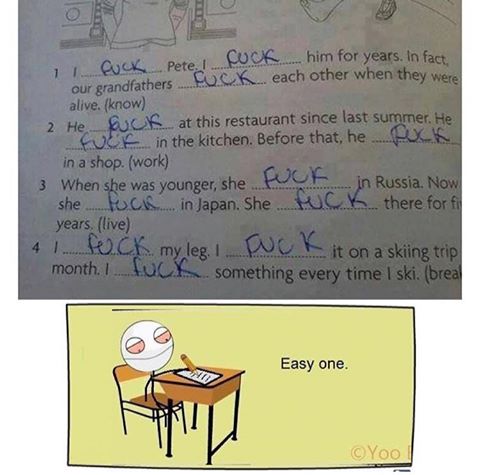 1 I fuck Pete. I fuck him for years. In fact,
our grandfathers fuck each other when they were
alive. (know)
2 He fuck at this restaurant since last summer. He
fuck in the kitchen. Before that, he fuck
in a shop. (work)
3 When she was younger, she fuck in Russia. Now
she fuck in Japan. She fuck there for
years. (live)
4 I fuck my leg. I fuck it on a skiing trip
month. I fuck something every time I ski.
Easy one.
©Yoo